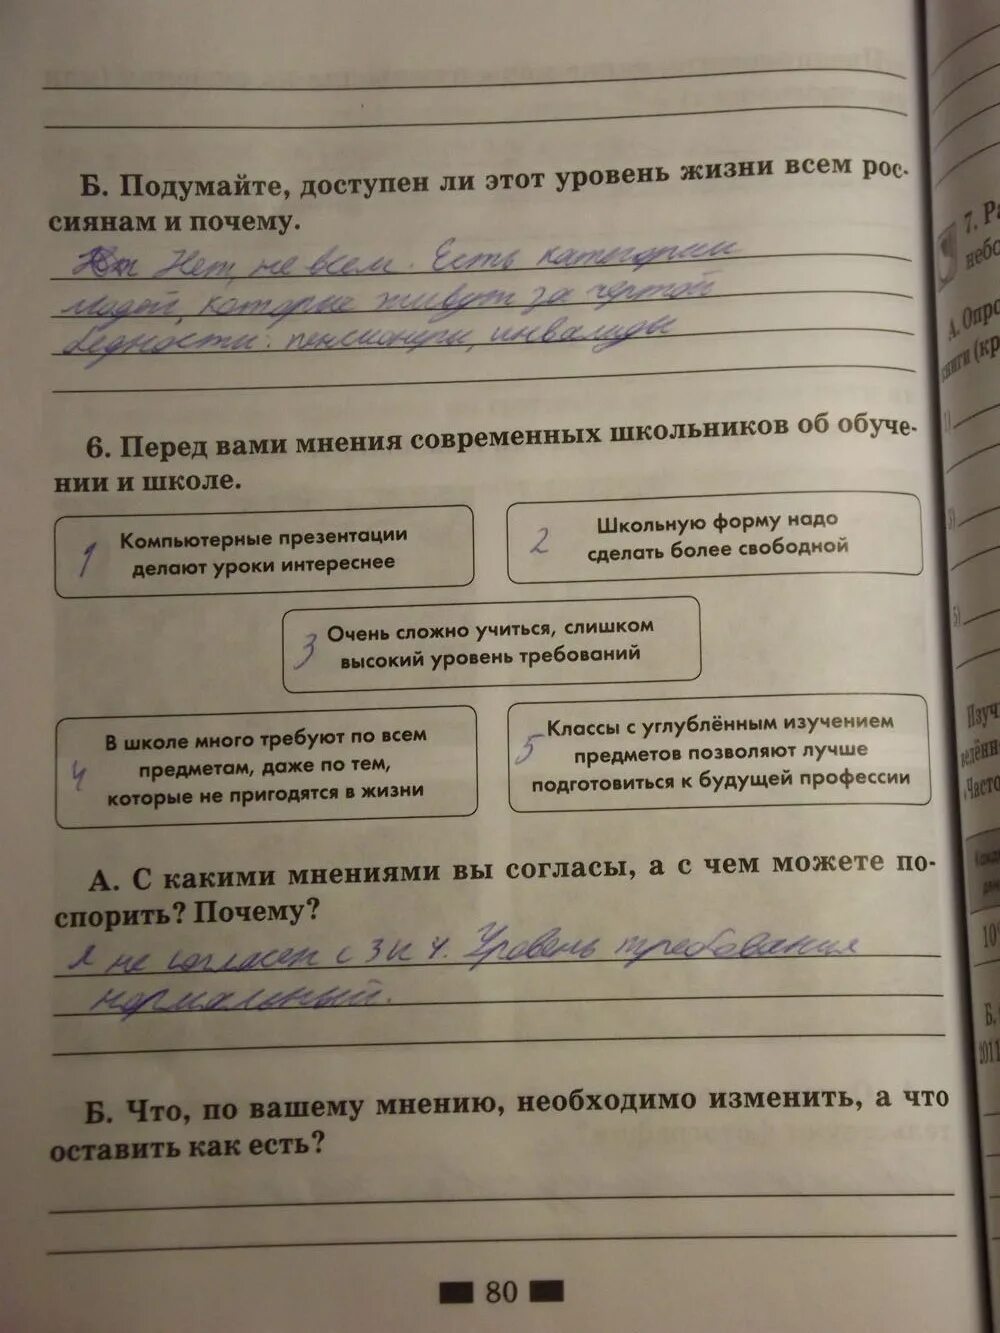 Б. Подумайте, доступен ли этот уровень жизни всем рос-
сиянам и почему.
Нет, не всем. Есть категории
людей, которые живут за чертой
бедности: пенсионеры, инвалиды
6. Перед вами мнения современных школьников об обуче-
нии и школе.
1 Компьютерные презентации
делают уроки интереснее
2 Школьную форму надо
сделать более свободной
3 Очень сложно учиться, слишком
высокий уровень требований
4 В школе много требуют по всем
предметам, даже по тем,
которые не пригодятся в жизни
5 Классы с углублённым изучением
предметов позволяют лучше
подготовиться к будущей профессии
А. С какими мнениями вы согласы, а с чем можете по-
спорить? Почему?
Я не согласен с 3 и 4. Уровень требования
нормальный.
Б. Что, по вашему мнению, необходимо изменить, а что
оставить как есть?
80
7. Ра
небо
А. Опро
книги (кр
1)
3)
5)
Изуч
ведённ
Часто
10
Б.
2011